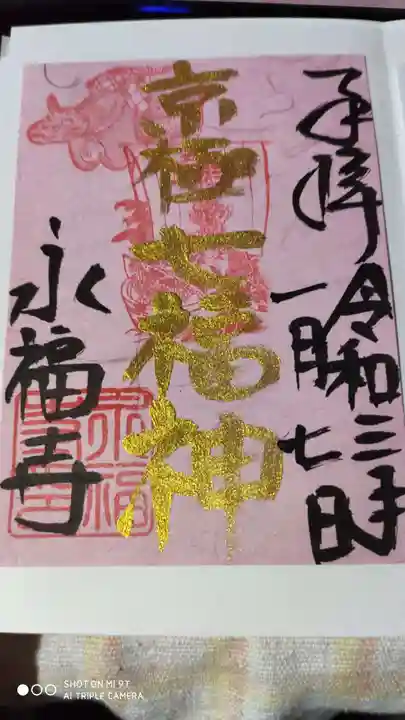 奉拝
令和三年
一月七日
京極七福神
永福寺
永福
SHOT ON MI 9T
AI TRIPLE CAMERA